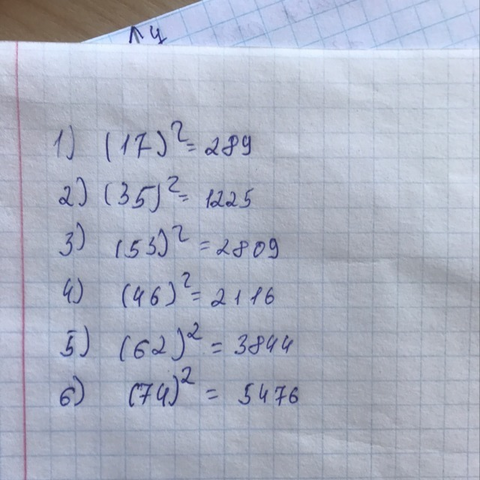 лч
1) (17)² = 289
2) (35)² = 1225
3) (53)² = 2809
4) (46)² = 2116
5) (62)² = 3844
6) (74)² = 5476